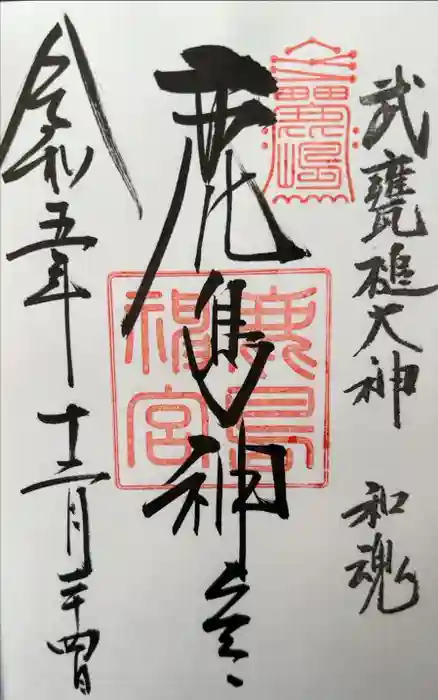 武甕槌大神 和魂
鹿島神宮
鹿島神宮
令和五年十二月二十四日